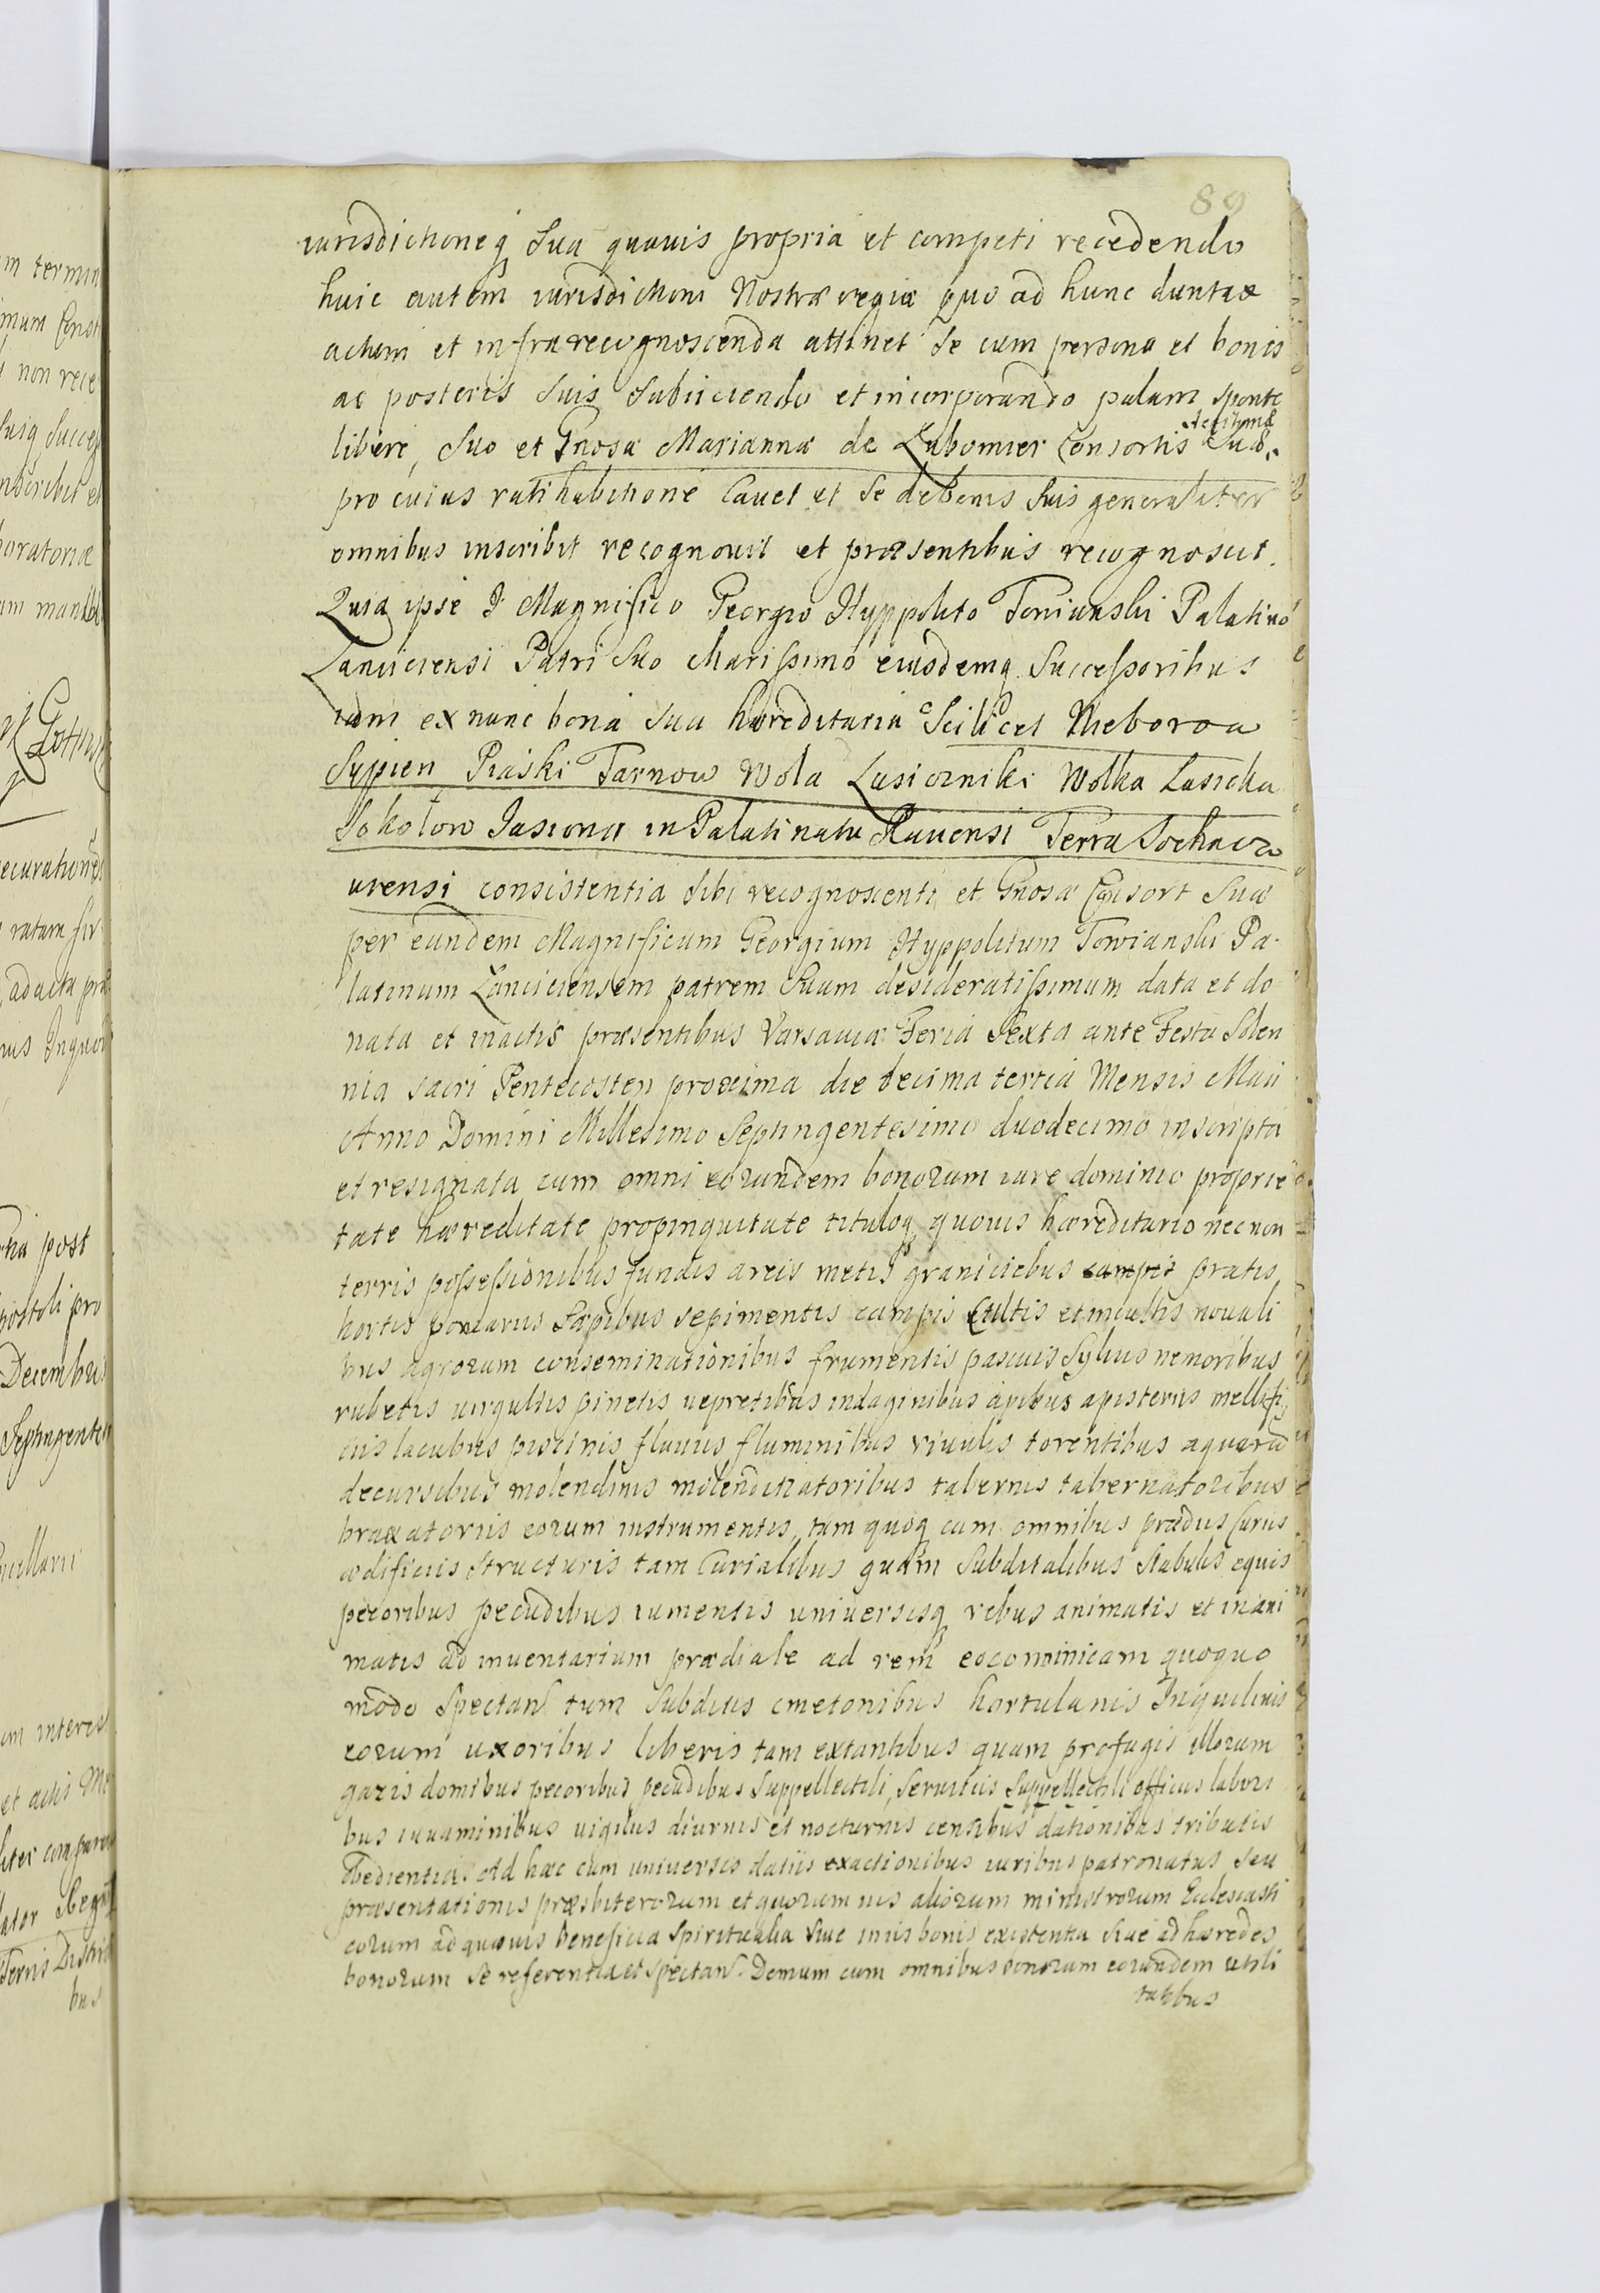 89
iurisdictioneq sua quavis propria et competi recedendo
huic autem iurisdictioni Nostræ regiæ quo ad hunc duntax
actum et infrarecognoscenda attinet se cum persona et bonis
ac posteris suis subiiciendo et incorporando palam sponte
libere, suo et Gnosæ Mariannæ de Lubomier Consortis legitimæ suæ
pro cuius ratihabitione cavet et se debonis suis generaliter
omnibus inscribit recognovit et præsentibus recognoscit.
Quia ipse Magnifico Georgio Hyppolito Towianski Palatino
Lanciciensi Patri suo Charissimo eiusdemq successoribus
iam ex nunc bona sua hæreditaria Scilicet Nieborow
Sypien Piaski Tarnow Wola Lasiczniki Wolka Lasicka
Sokołow Jasiona in Palatinatu Ravensi Terra Sochacz
viensi consistentia sibi recognoscenti et Gnosæ Consort suæ
per eundem Magnificum Georgium Hyppolitum Towianski Pa-
latinum Lanciciensem patrem suum desideratissimum data et do
nata et inactis præsentibus Varsaviæ Feria Sexta ante Festa Solen
nia sacri Pentecosten proxima die decima tertia Mensis Maii
Anno Domini Millesimo Septingentesimo duodecimo inscripta
et resignata cum omni eorundem bonorum iure dominio proprie
tate hæreditate propinquitate tituloq quovis hæreditario necnon
terris possessionibus fundis areis metis graniciebus campis pratis
hortis pomariis sæpibus sepimentis campis Cultis et incultis novali
bus agrorum conseminationibus frumentis pascuis sylvis nemoribus
rubetis virgultis pinetis vepretibus indaginibus apibus apisteriis mellifi
ciis lacubus piscinis fluviis fluminibus rivulis torentibus aquarū
decursibus molendinis molenditatoribus tabernis tabernatoribus
braxatoriis eorum instrumentis, tum quoq cum omnibus prædiis curiis
ædificiis structuris tam Curialibus quam Subditalibus Stabulis equis
pecoribus pecudibus iumentis universisq rebus animatis et inani
matis ad inventarium prædiale ad rem eoconomicam quoquo
modo spectan tum subditis cmetonibus hortulanis Inquilinis
eorum uxoribus liberis tam extantibus quam profugis illorum
gazis domibus pecoribus pecudibus suppellectili, servitiis suppellectili officiis labori
bus iuvaminibus vigiliis diurnis et nocturnis censibus dationibus tributis
obedientia. Ad hæc cum universis datiis exactionibus iuribus patronatus seu
præsentationis præsbiterorum et quorum vis aliorum ministrorum Ecclesiasti
corum ad quævis beneficia Spiritualia sive iniis bonis existentia sive ad hæredes
bonorum se referentia et spectan. Demum cum omnibus bonorum eorundem utili
tatibus